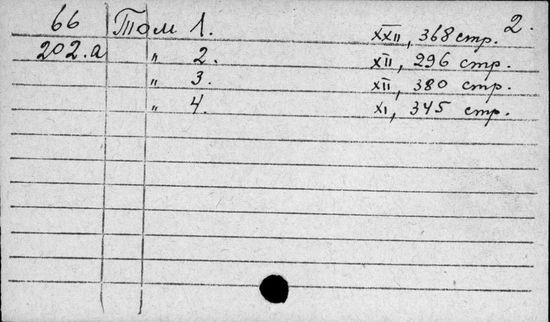 2.
66 Том 1. XXII, 368 стр.
202.a " 2. XII, 296 стр.
" 3. XII, 380 стр.
" 4. XI, 345 стр.